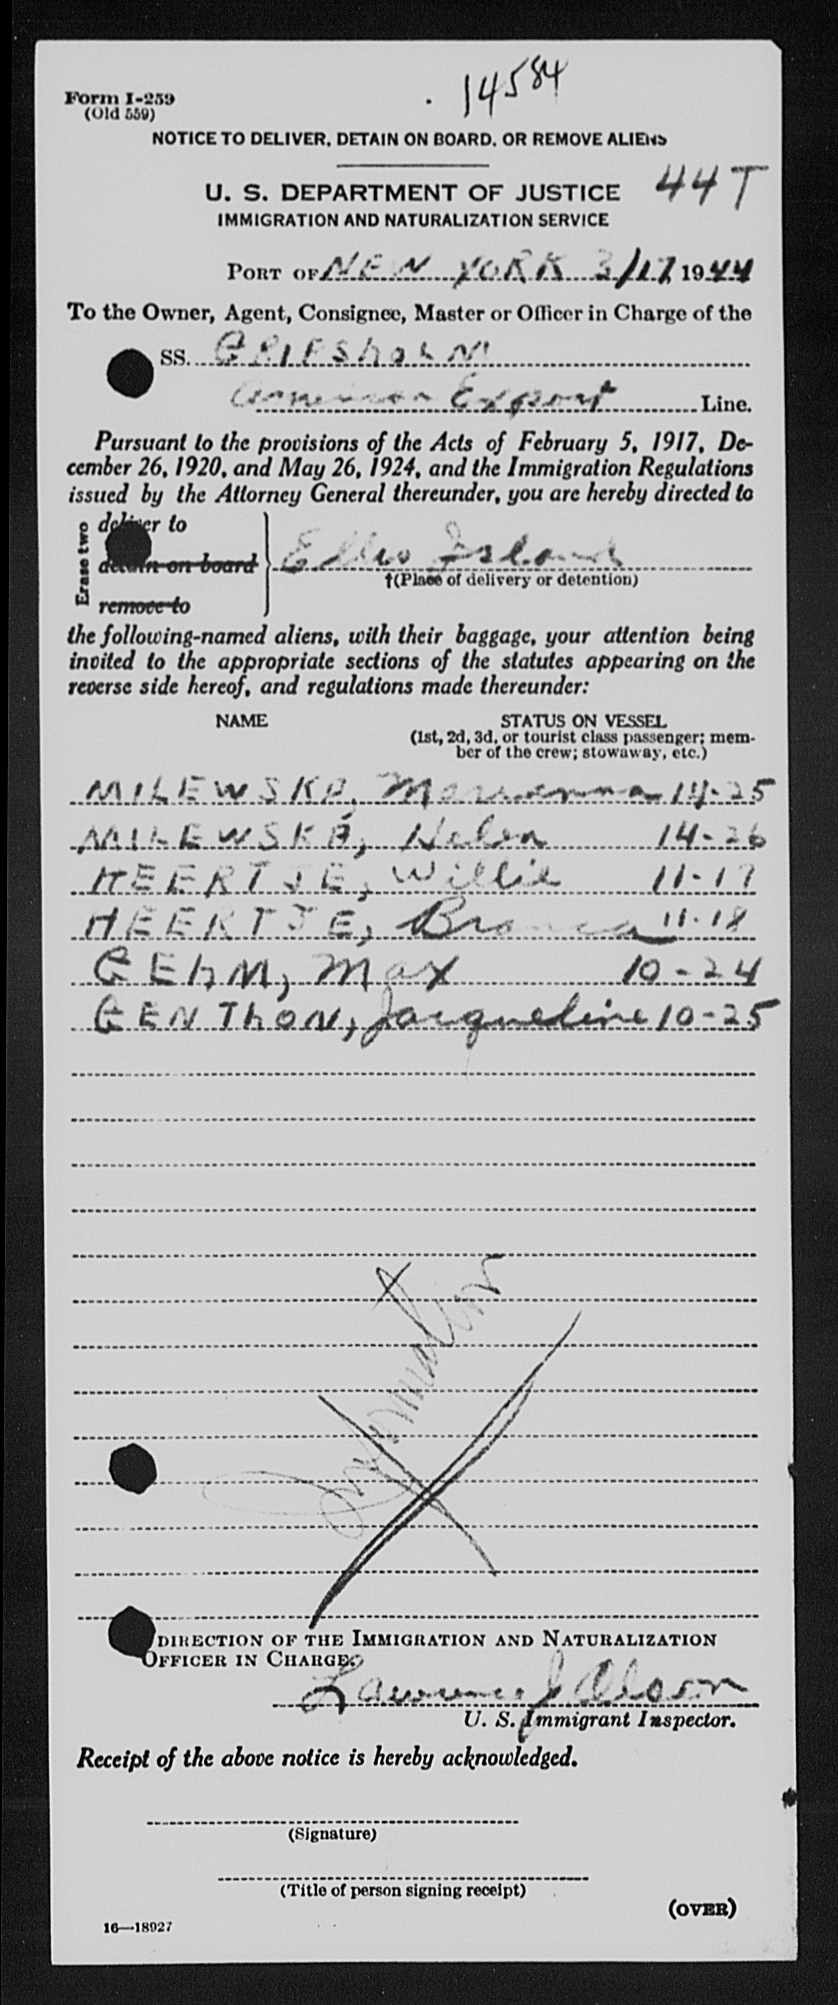 Form I-259
(Old 559)
14584
NOTICE TO DELIVER, DETAIN ON BOARD, OR REMOVE ALIENS
44T
U. S. DEPARTMENT OF JUSTICE
IMMIGRATION AND NATURALIZATION SERVICE
PORT OF NEW YORK 3/17 1944
To the Owner, Agent, Consignee, Master or Officer in Charge of the
SS. GRIPSHOLM
American Export Line.
Pursuant to the provisions of the Acts of February 5, 1917, De-
cember 26, 1920, and May 26, 1924, and the Immigration Regulations
issued by the Attorney General thereunder, you are hereby directed to
Erase two
deliver to
detain on board
remove to
Ellis Island
†(Place of delivery or detention)
the following-named aliens, with their baggage, your attention being
invited to the appropriate sections of the statutes appearing on the
reverse side hereof, and regulations made thereunder:
NAME STATUS ON VESSEL
(1st, 2d, 3d, or tourist class passenger; mem-
ber of the crew; stowaway, etc.)
MILEWSKA, Marianna 14-25
MILEWSKA, Helen 14-26
HEERTJE, Willie 11-17
HEERTJE, Branca 11-18
GEhM, Max 10-24
GENThON, Jacqueline 10-25
Information
DIRECTION OF THE IMMIGRATION AND NATURALIZATION
OFFICER IN CHARGE:
Lawrence J Olson
U. S. Immigrant Inspector.
Receipt of the above notice is hereby acknowledged.
(Signature)
(Title of person signing receipt)
(OVER)
16—18927